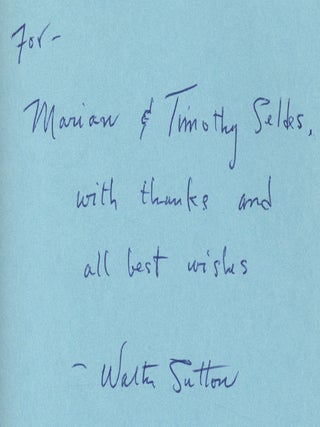 For-
Marian & Timothy Seldes,
with thanks and
all best wishes
- Walter Sutton